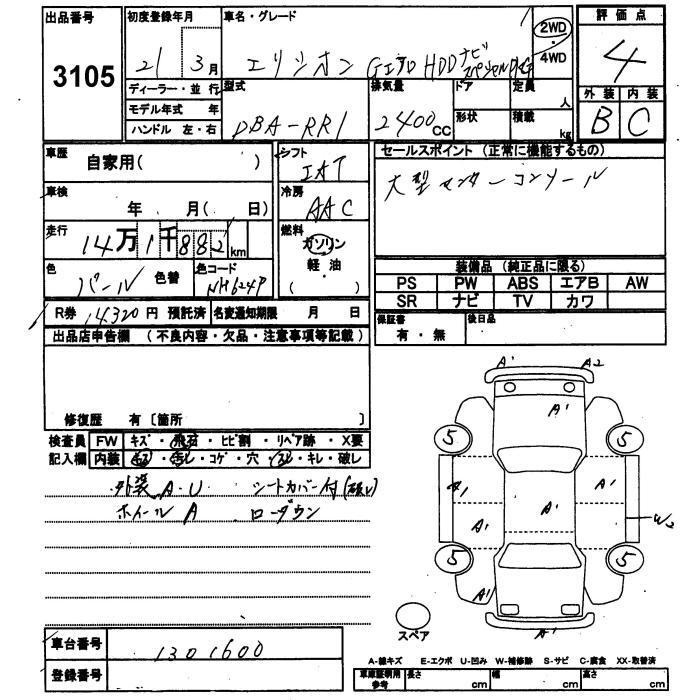 出品番号
3105
初度登録年月
21 3月
車名・グレード
エリシオン GエアロHDDナビ
2WD
・
4WD
評価点
4
ディーラー・並行
モデル年式 年
ハンドル 左・右
型式
DBA-RR1
排気量
2400CC
ドア
形状
定員
人
積載
kg
外装 内装
B C
車歴
自家用( )
シフト
IAT
セールスポイント (正常に機能するもの)
大型センターコンソール
車検
年 月( 日)
冷房
AAC
走行
14万1千882km
燃料
ガソリン
軽・油
( )
色
パール
色替
色コード
NH624P
装備品 (純正品に限る)
PS PW ABS エアB AW
SR ナビ TV カワ
R券 14320円 預託済 名変通知期限 月 日
保証書
有・無
後日品
出品店申告欄 (不良内容・欠品・注意事項等記載)
修復歴 有〔箇所 〕
検査員 FW キズ・飛石・ヒビ割・リペア跡・X要
記入欄 内装 キズ・汚レ・コゲ・穴・スレ・キレ・破レ
外装 A・U シートカバー付(破レ)
ホイール A ローダウン
A' A2
A'
5 5
A1 A' A'
A'
W2
5 5
A'
A'
スペア
車台番号
1301600
登録番号
A-線キズ E-エクボ U-凹み W-補修跡 S-サビ C-腐食 XX-取替済
車庫証明用
参考
長さ cm 幅 cm 高さ cm